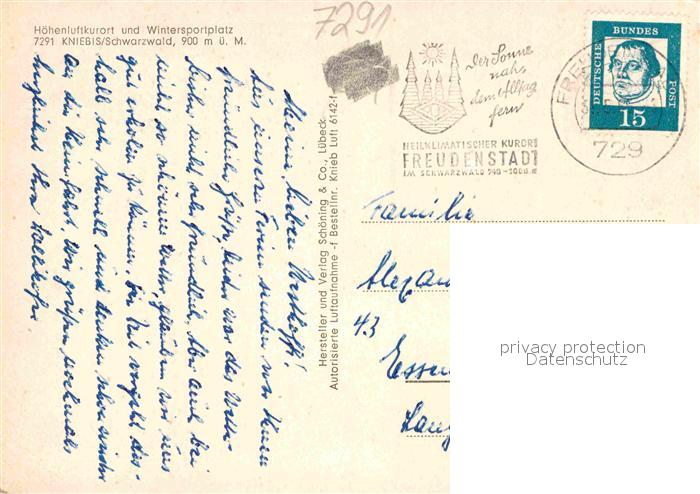 Höhenluftkurort und Wintersportplatz
7291 KNIEBIS/Schwarzwald, 900 m ü. M.
7291
Der Sonne
nahe
dem Alltag
fern
HEILKLIMATISCHER KURORT
FREUDENSTADT
IM SCHWARZWALD 740-1000 m
729
DEUTSCHE
BUNDES
POST
15
Meine lieben
Aus unseren Ferien senden wir Ihnen
freundliche Grüße, leider war das Wetter
bisher nicht sehr freundlich, aber auch bei
nicht so schönem Wetter glauben wir uns
gut erholen zu können. Die Zeit vergeht des-
halb sehr schnell und denken schon wieder
an die Heimfahrt. Wir grüßen nochmals
herzlichst Ihre
Hersteller und Verlag Schöning & Co., Lübeck
Autorisierte Luftaufnahme -f Bestellnr. Knieb Luft 6142-f
Familie
Alexan
43
Essen
privacy protection
Datenschutz